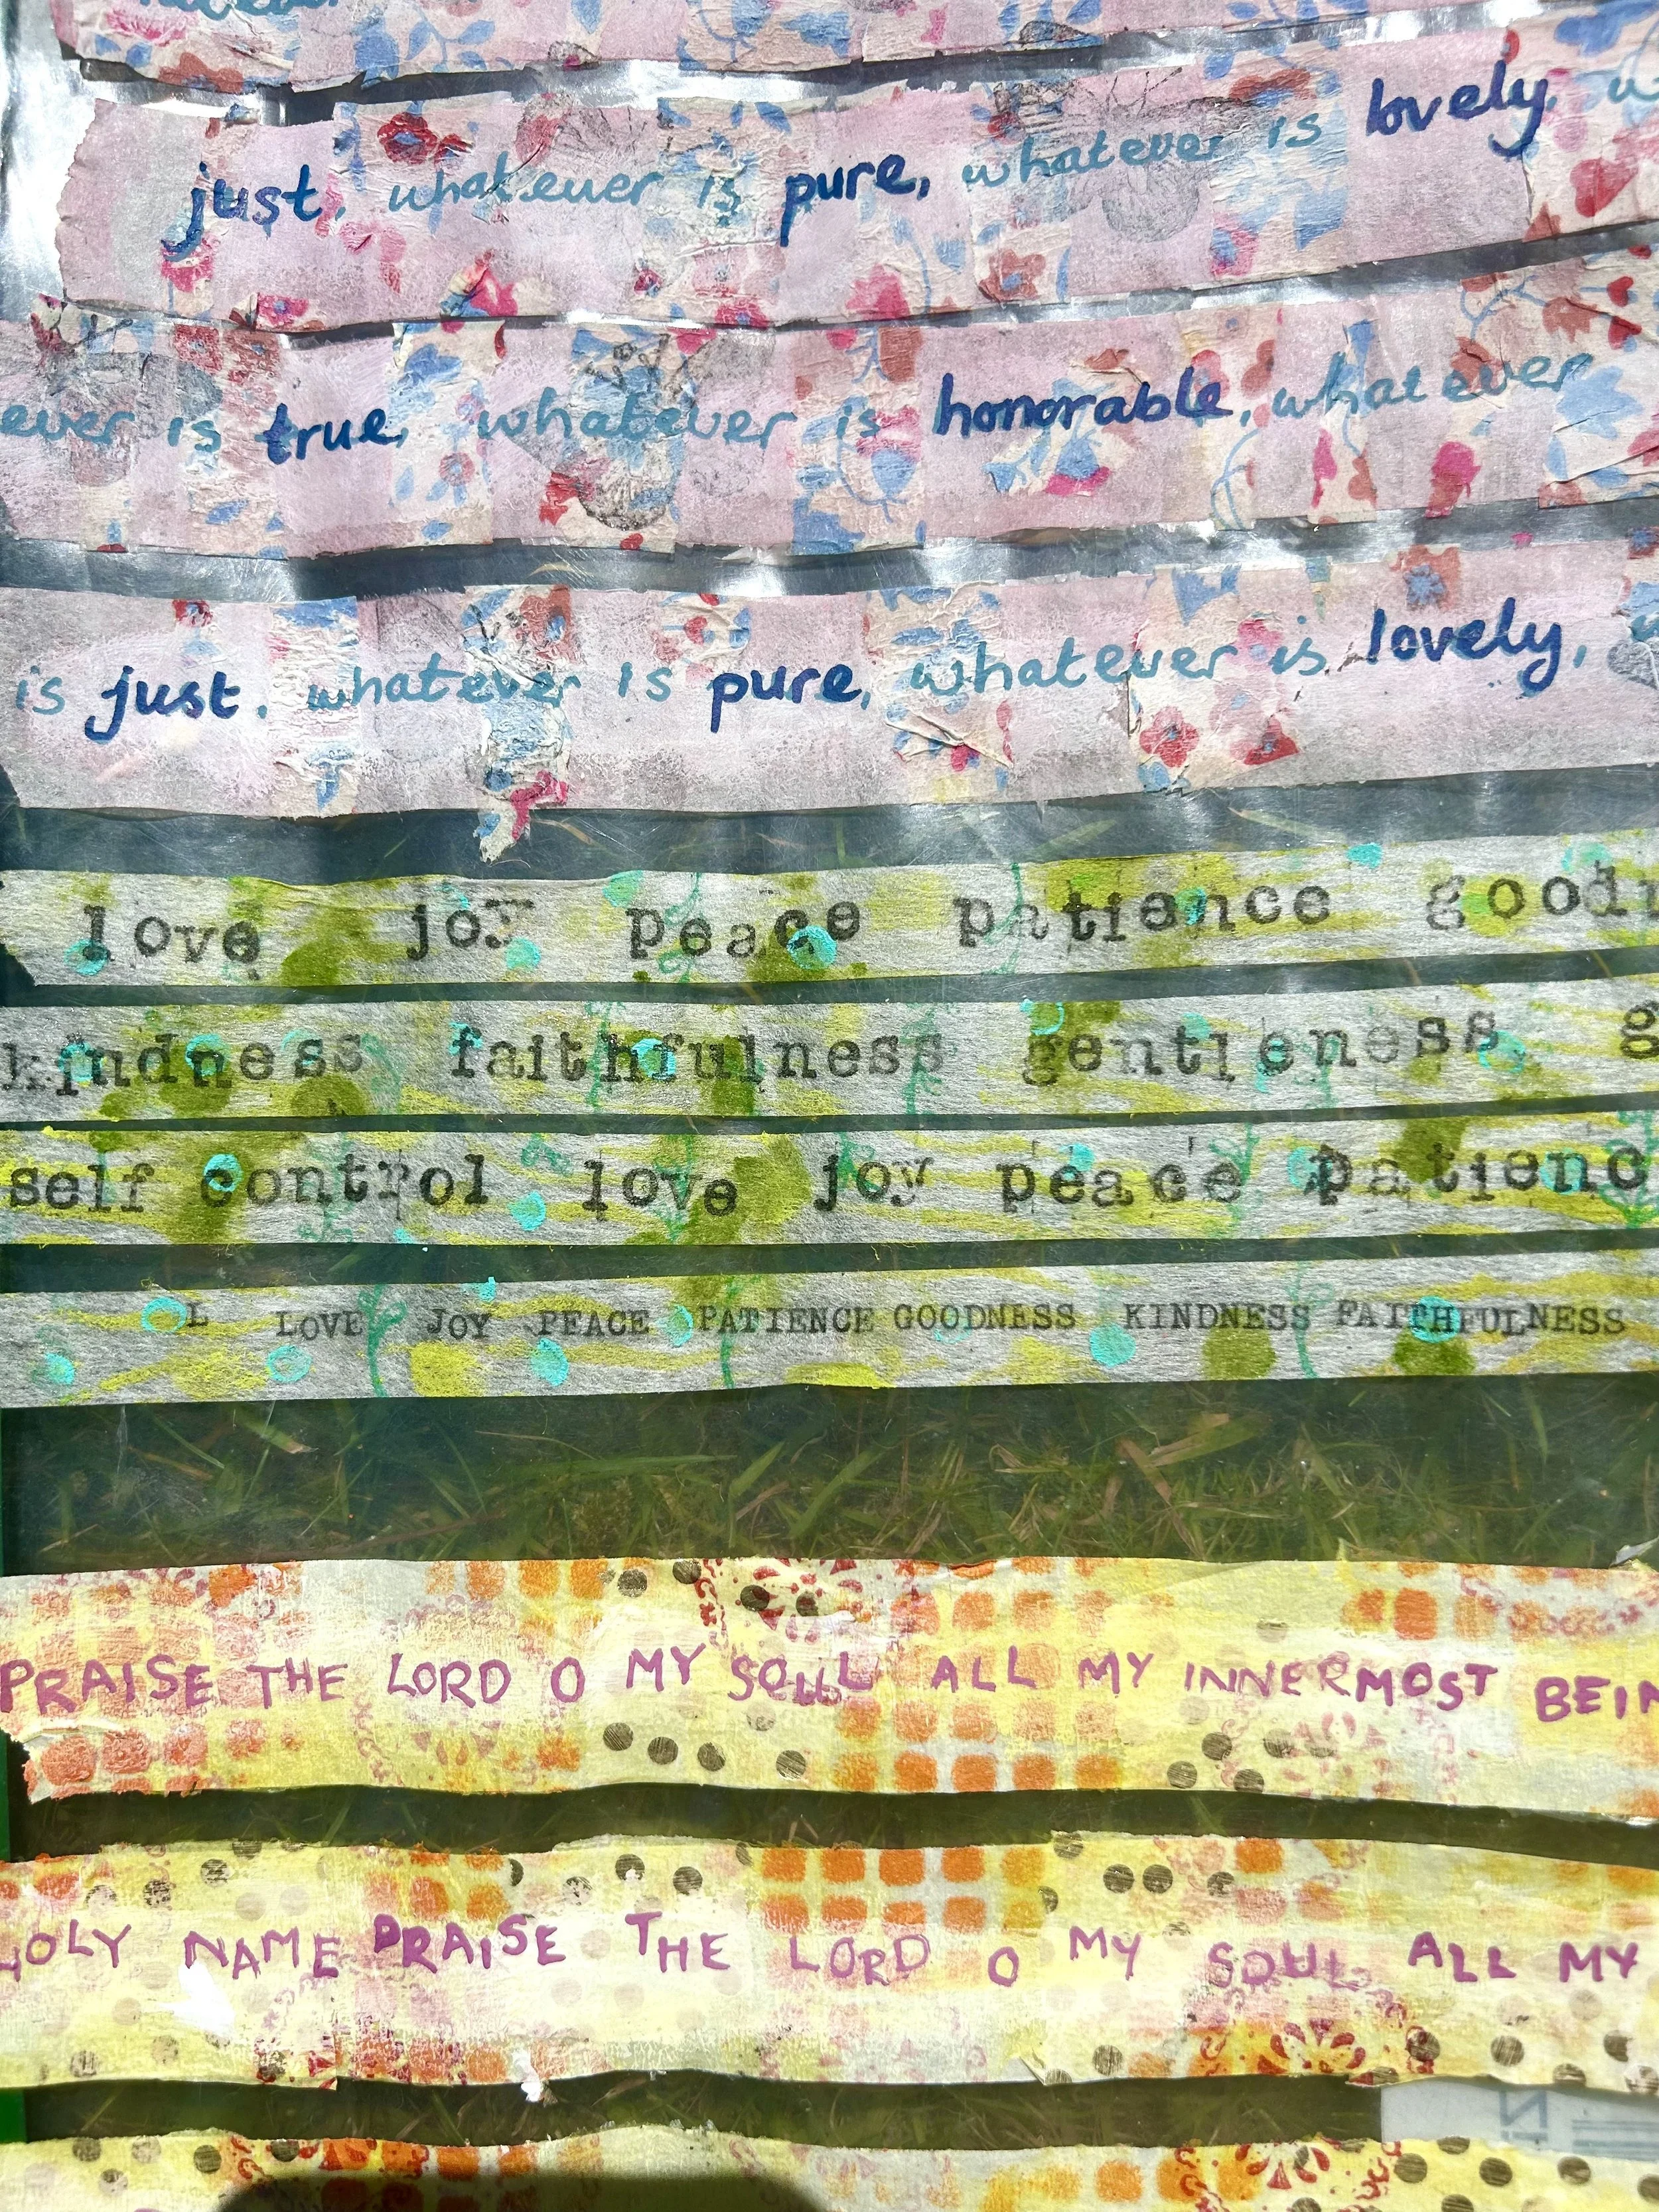 just, whatever is pure, whatever is lovely,
ever is true, whatever is honorable, whatever
is just, whatever is pure, whatever is lovely,
love joy peace patience good
kindness faithfulness gentleness g
self control love joy peace patienc
L LOVE JOY PEACE PATIENCE GOODNESS KINDNESS FAITHFULNESS
PRAISE THE LORD O MY SOUL ALL MY INNERMOST BEIN
HOLY NAME PRAISE THE LORD O MY SOUL ALL MY